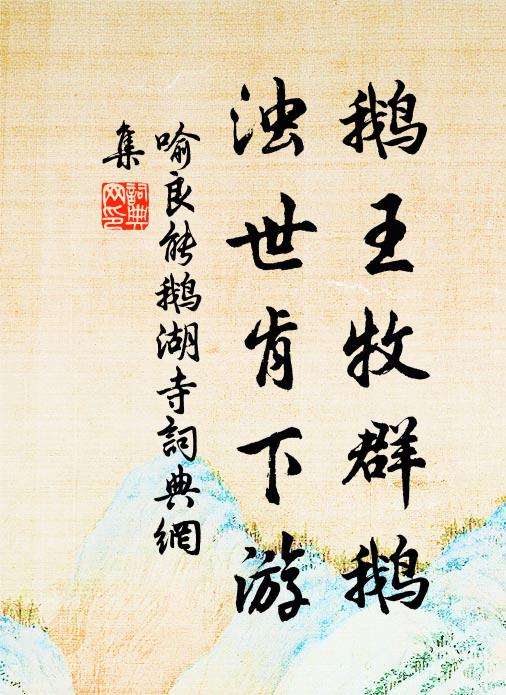 鹅王牧群鹅
浊世肯下游
喻良能鹅湖寺詞典網
集
詞典
网印